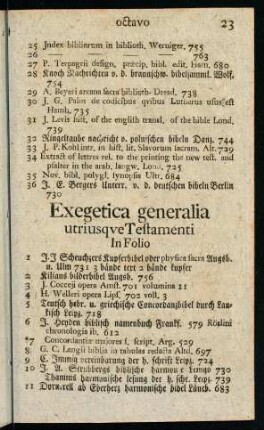 octavo 23
25 Index bibliorum in biblioth. Werniger. 755
26 — — — 763
27 P. Terpagrii design. præcip. bibl. edit. Ham. 680
28 Knoch Nachrichten v. d. braunschw. bibelsamml. Wolf.
754
29 A. Beyeri arcana sacra biblioth. Dresd. 738
30 J. G. Palm de codicibus qvibus Lutherus usus est
Hamb. 735
31 J. Levis hist. of the english transl. of the bible Lond.
739
32 Ringeltaube nachricht v. polnischen bibeln Danz. 744
33 J. P. Kohl intr. in hist. lit. Slavorum sacram. Altr. 729
34 Extract of lettres rel. to the printing the new test. and
psalter in the arab. langv. Lond. 725
35 Nov. bibl. polygl. synopsis Ultr. 684
36 J. E. Bergers Unterr. v. d. deutschen bibeln Berlin
730
Exegetica generalia
utriusqve Testamenti
In Folio
1 J. J Scheuchzers Kupferbibel oder physica sacra Augsb.
u. Ulm 731 3 bände text 2 bände kupfer
2 Kilians bilderbibel Augsb. 756
3 J. Cocceji opera Amst. 701 volumina 11
4 H. Welleri opera Lips. 702 voll. 3
5 Teutsch hebr. u. griechische Concordanzbibel durch Lan-
kisch Leipz. 718
6 J. Heyden biblisch namenbuch Frankf. 579 Röslini
chronologia ib. 612
*7 Concordantiæ maiores s. script. Arg. 529
8 G. C. Langii biblia in tabulas redacta Altd. 697
9 C. Immig vereinbarung der h. schrift Leipz. 724
10 J. A. Strubbergs biblische harmonie Lemgo 730
Thamms harmonische lesung der h. schr. Leipz. 739
11 ab Eberherz harmonische bibel Lüneb. 683